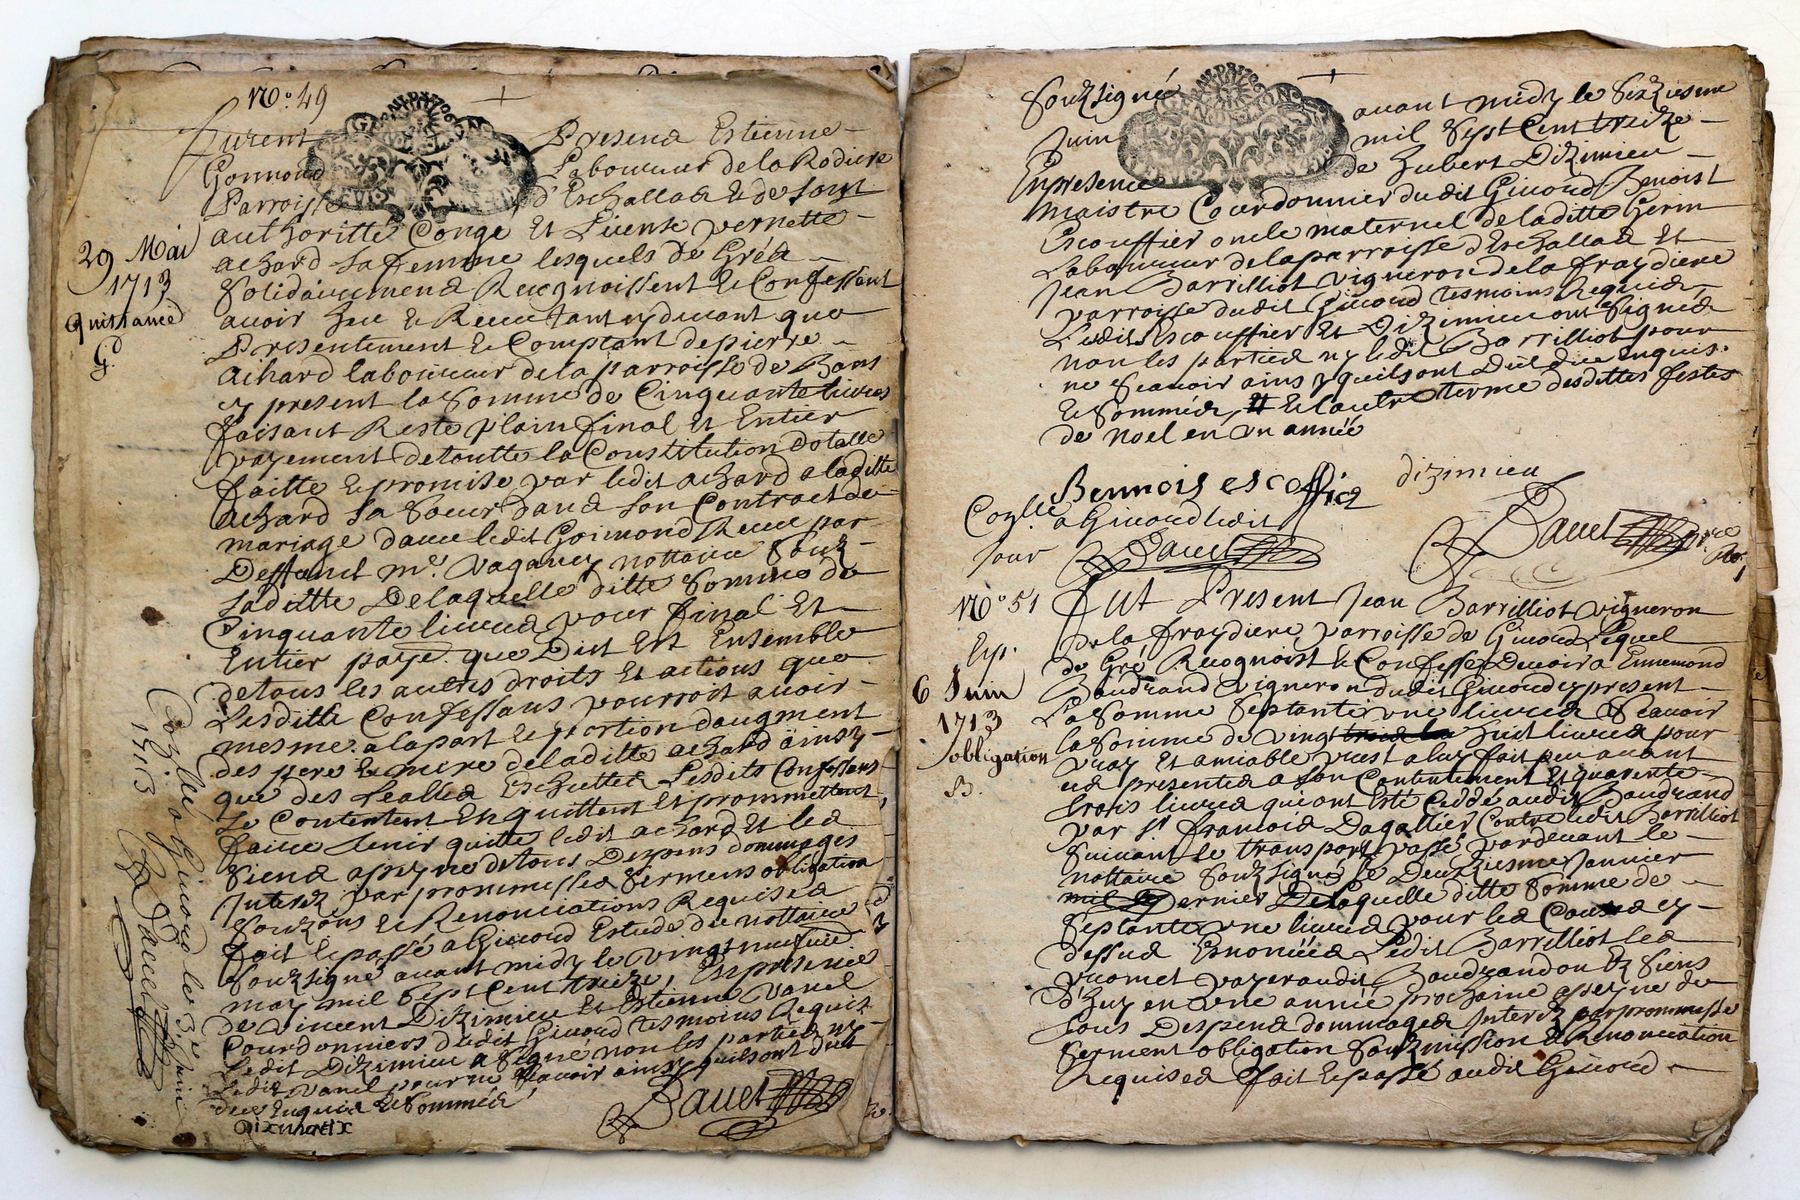 N.° 49
furent Presens Estienne
Gonnond Laboureur de la Rodiere
Parroisse d'Eschallas & de sont
authoritté Congé Et License vernette
achard sa femme lesquels de Gréa
Solidairement Recognoissent & Confessent
avoir heu & Receu tant cydevant que
Presentement & Comptant depierre
Achard laboureur dela parroisse de
cy present la Somme de Cinquante livres
faisant Reste plain final Et Entier
payement detoutte la Constitution dotalle
faitte & promise par ledit achard a laditte
achard sa Soeur dans son Contract de
mariage avec ledit Gonnond Receu par
Deffunct m.e vaganay nottaire Souz
Laditte Delaquelle ditte Somme de
Cinquante livres pour final Et
Entier paye que Dict Est Ensemble
detous les autres droits Et actions que
Lesditts Confessans pourroit avoir
mesme alapart & portion daugment
des pere & mere deladitte achard ainsy
que des Lealles Eschuttes Lesdits Confessans
se Contentent En quittent Et promettent
faire tenir quitte ledit achard Et les
Siens apeyne detous Despens dommages
Interez par prommesses sermens obligation
Souzons & Renonciations Requises
fait & passé a Givord Estude du nottaire
Souzsigné avant midy le vingt neufvie
may mil Sept Cent treize, En presence
de Vincent Dizimieu Et Estienne vanel
Courdonniers dudit Givord tesmoins Requit
Ledit Dizimieu a signé non les parties ny
ledit vanel pour ne Scavoir ainsy quilsont dict
deue Enquis & Sommés
Dauet
29 Mai
1713
quittance
G.d
Souzsigné avant midy le Sizziesme
Juin mil Sept Cent treize
Enpresence de hubert Dizimieu
Maistre Courdonnier dudit Givord Benoist
Escouffier oncle maternel de laditte Germ
Laboureur delaparroisse d'Eschallas Et
Jean Barrilliot vigneron dela fraydiere
parroisse dudit Givord tesmoins Requis
Ledit Escouffier Et Dizimieu ont Signés
non les parties ny ledit Barrilliot pour
ne Scavoir ainsy quilsont dict due Enquis
& Sommés, & Lautre terme desdittes festes
de noel en un année
Bennois escoffier dizimieu
Conlle a Givord ledit
Jour Dauet
Dauet
N.° 51 fut Present Jean Barrilliot vigneron
Exp. de la fraydiere parroisse de Givord Lequel
de Gré Recognoist & Confesse Devoir a Ennemond
6 Juin Baudrand vigneron dudit Givord cy present
La Somme Septante une livres Scavoir
1713 la Somme de vingt huit livres pour
obligation vray Et amiable prest a luy fait peu avant
B. es presentes a son Contentement Et quarente
trois livres quiont Esté Ceddé audit Baudrand
par s.r francois Dagallier Contre ledit Barrilliot
Suivant le transport passé pardevant le
nottaire Souzsigné le Deuxziesme Janvier
Dernier Delaquelle ditte Somme de
Septante une livres pour les Causes cy
dessus Enoncées Ledit Barrilliot les
promet payer audit Baudrand ou Ez Siens
d'huy en une année prochaine apeyne de
tous Despens dommages Interez par prommesse
serment obligation Souzmission & Renonciation
Requises fait & passé audit Givord